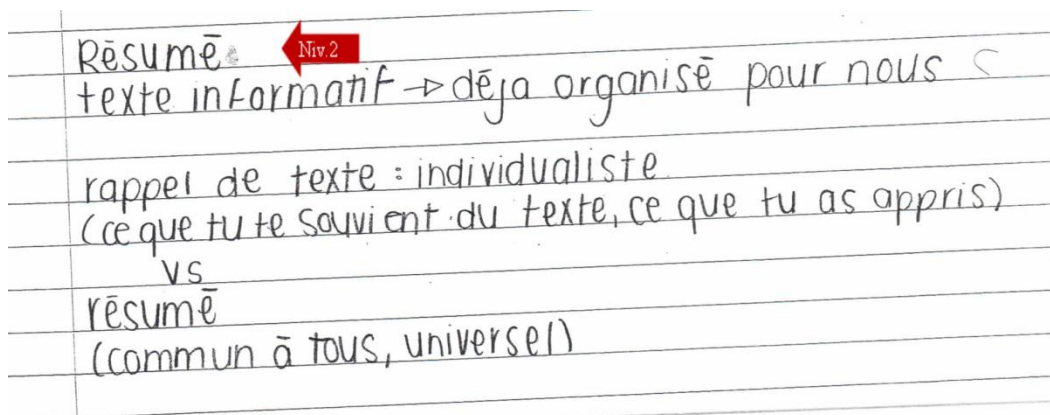 Résumé Niv.2
texte informatif → déja organisé pour nous
rappel de texte : individualiste
(ce que tu te souvient du texte, ce que tu as appris)
vs
résumé
(commun à tous, universel)